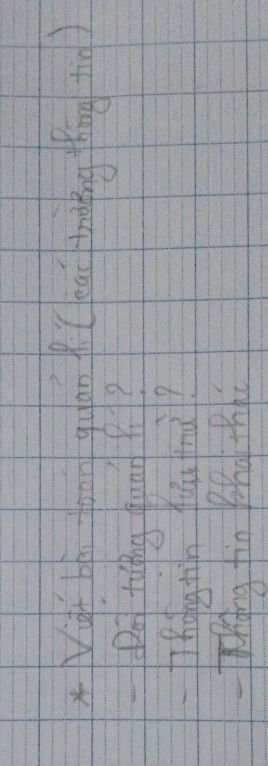 * Viết bài toán quản lí (các trường thông tin)
- Đối tượng quản lí ?
- Thông tin lưu trữ ?
- Thông tin khai thác